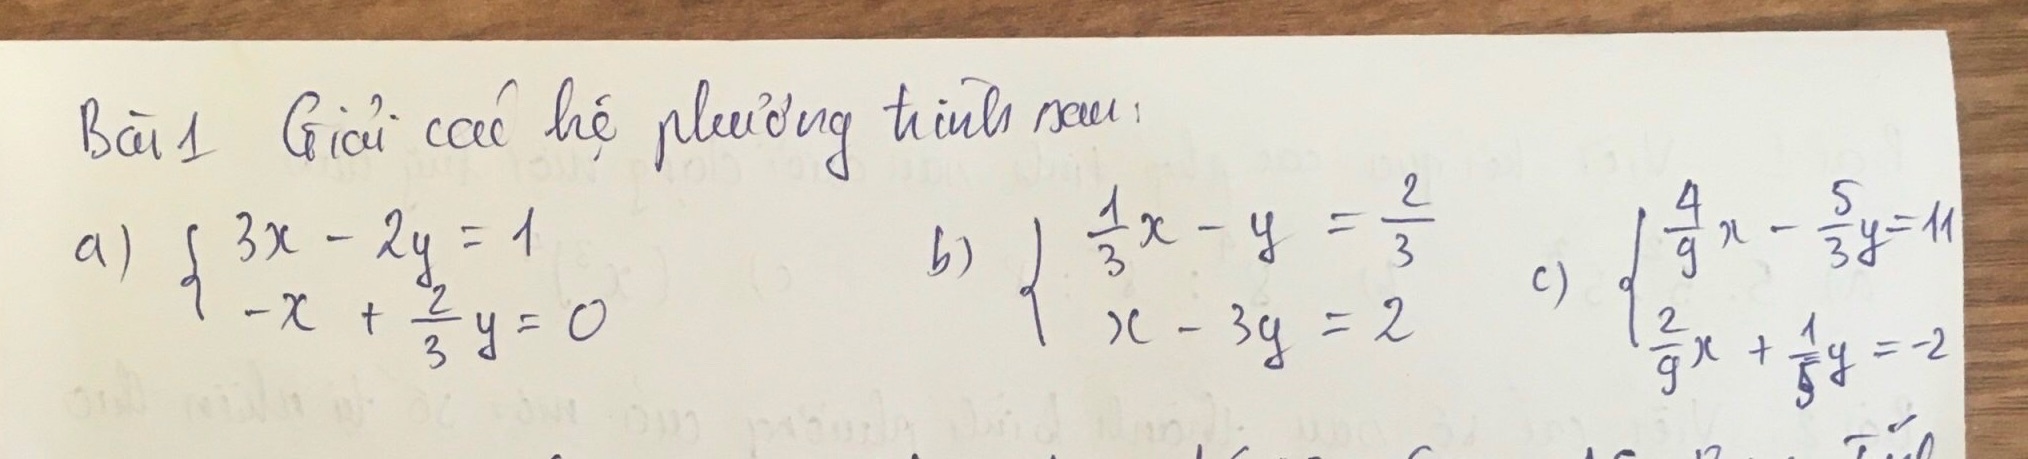 Bài 1 Giải các hệ phương trình sau:
a) { 3x - 2y = 1
-x + 2/3 y = 0
b) { 1/3 x - y = 2/3
x - 3y = 2
c) { 4/9 x - 5/3 y = 11
2/9 x + 1/5 y = -2